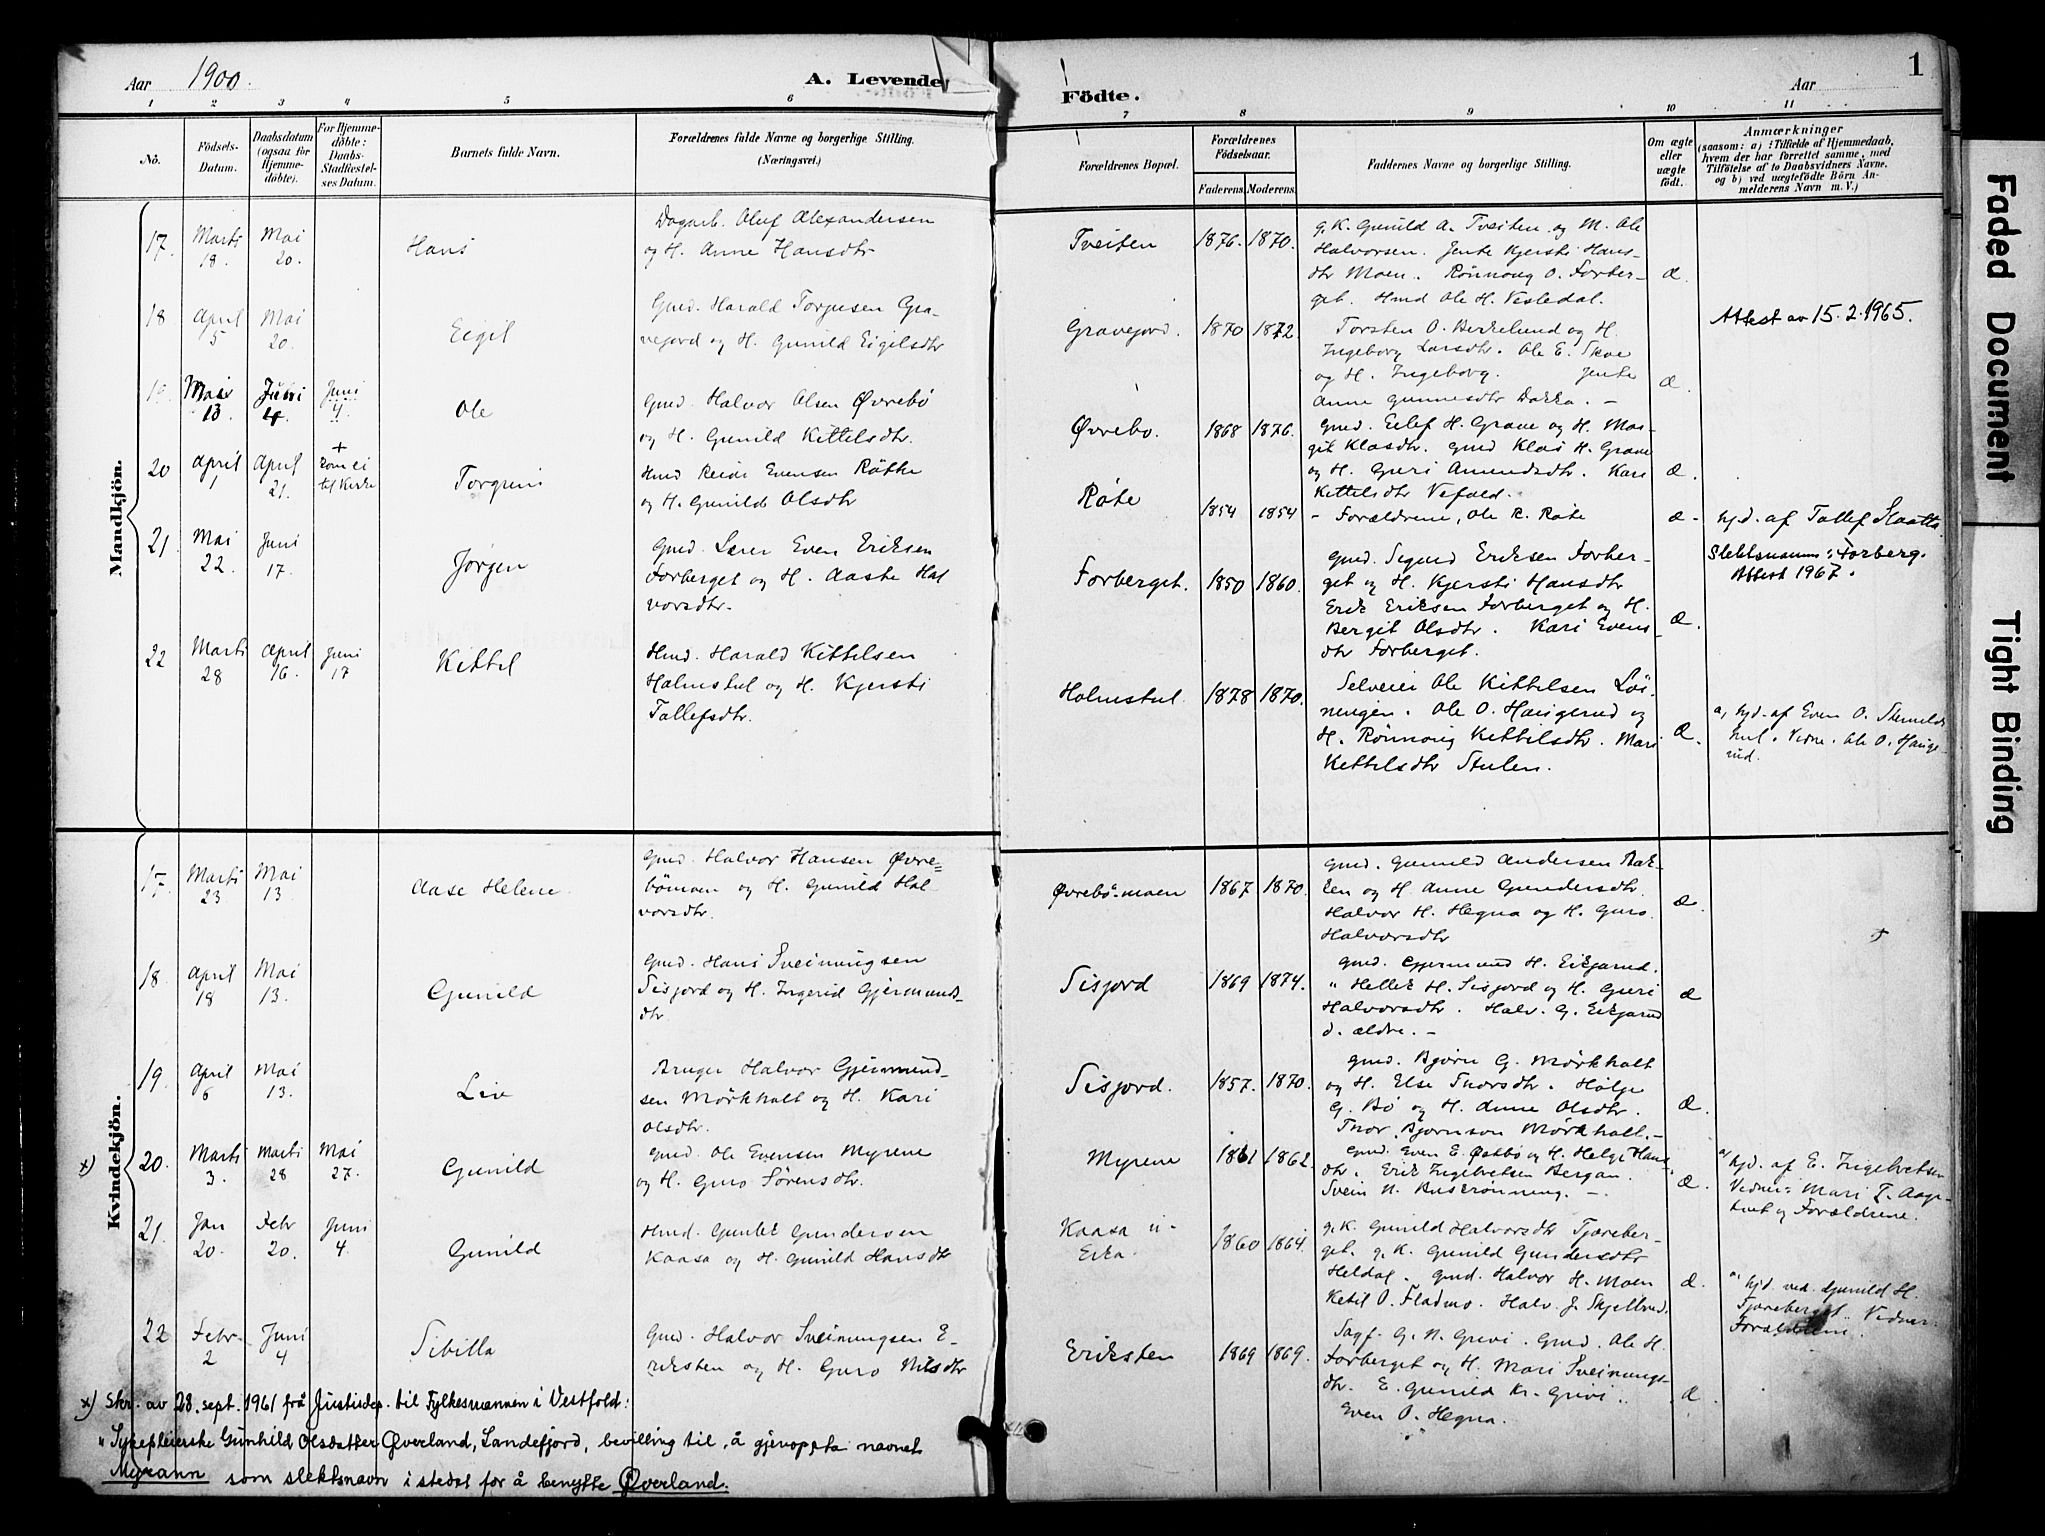 Aar 1900.
A. Levende
Födte.
Aar
1
1 2 3 4 5 6 7 8 9 10 11
No.
Födsels-
Datum.
Daabsdatum
(ogsaa for
Hjemme-
döbte).
For Hjemme-
döbte:
Daabs-
Stadfæstel-
ses Datum.
Barnets fulde Navn.
Forældrenes fulde Navne og borgerlige Stilling.
(Næringsvei.)
Forældrenes Bopæl.
Forældrenes
Födselsaar.
Faderens. Moderens.
Faddernes Navne og borgerlige Stilling.
Om ægte
eller
uægte
födt.
Anmærkninger
(saasom: a) i Tilfælde af Hjemmedaab,
hvem der har forrettet samme, med
Tilföielse af to Daabsvidners Navne,
og b) ved uægtefödte Börn An-
melderens Navn m. V.)
Mandkjön.
17. Marts 18. Mai 20. Hans
Dagarb. Oluf Alexandersen
og H. Anne Hansdtr
Tveiten 1876. 1870.
g. K. Gunild A. Tveiten og M. Ole
Halvorsen. Jente Kjersti Hans-
dtr Moen. Rönnoug O. Forber-
get. Hmd Ole H. Vesledal.
Æ.
18 April 5 Mai 20. Eigil
Gmd. Harald Torjusen Gra-
vejord og H. Gunild Eigilsdtr
Gravejord. 1870 1872.
Torsten O. Birkelund og H.
Ingeborg Larsdtr. Ole E. Skoe
og H. Ingeborg. Jente
Anne Gunnesdtr Dokka. -
Æ.
Attest av 15.2.1965.
19. Mai 13 Juni 4. Juni 4. Ole
Gmd. Halvor Olsen Øvrebø
og H. Gunild Kittelsdtr.
Øvrebo. 1868 1876.
Gmd. Eilef H. Grave og H. Mar-
git Klasdtr. Gmd Klas H. Grave
og H. Guri Amundsdtr. Kari
Kittelsdtr Vefald.
Æ.
20 April 1 April 21. + Kom ei til Kirke Torgrim
Hmd Reiar Evensen Røthe
og H. Gunild Olsdtr
Røte 1854 1854
- Forældrene, Ole R. Røte
Æ - hjd. af Tallef Slaatta
21. Mai 22. Juni 17. Jørgen
Gmd. Lærer Even Eriksen
Forberget og H. Aaste Hal
vorsdtr.
Forberget. 1850 1860.
Gmd. Sigurd Eriksen Forber-
get og H. Kjersti Hansdtr
Erik Eriksen Forberget og H.
Bergit Olsdtr. Kari Evens-
dtr Forberget.
Æ.
Slektsnavn: Forberg.
Attest 1967.
22 Marts 28 April 16. Juni 17 Kittel
Hmd. Harald Kittelsen
Holmstul og H. Kjersti
Tallefsdtr.
Holmstul. 1878 1870.
Selveier Ole Kittelsen Löi-
ningen. Ole O. Haugerud og
H. Rönnoug Kittelsdtr. Mari
Kittelsdtr Stulen.
Æ.
a, hjd. af Even O. Stenulds
hul. Vidne. Ole O. Hauge-
rud.
Kvindekjön.
17. Marts 23. Mai 13 Aase Helene.
Gmd. Halvor Hansen Øvre=
bömoen og H. Gunild Hal
vorsdtr.
Øvrebö-moen 1867 1870.
Gmd. Gunuld Andersen Bak-
ken og H. Anne Gundersdtr.
Halvor H. Hegna og H. Guro
Halvorsdtr
Æ.
18. April 18 Mai 13. Gunild
Gmd. Hans Sveinungsen
Sisjord og H. Ingerid Gjermunds-
dtr.
Sisjord 1869 1874.
Gmd. Gjermund H. Eikjarud.
" Hellek H. Sisjord og H. Guri
Halvorsdtr. Halv. G. Eikjarud
d. ældre. -
Æ
19. April 6 Mai 13. Liv
Bruger Halvor Gjermund-
sen Mørkholt og H. Kari
Olsdtr.
Sisjord. 1857. 1870.
Gmd. Bjørn G. Mørkholt
og H. Else Thorsdtr. Hølje
G. Bö og H. Anne Olsdtr.
Thor Bjørnson Mørkholt.-
Æ.
x) 20. Marts 3. Marts 28 Mai 27. Gunild
Gmd. Ole Evensen Myrene
og H. Guro Sörensdtr.
Myrene 1861 1862.
Gmd. Even E. Østbø og H. Helge Hans
dtr. Erik Ingebretsen Bergan.
Svein N. Buskrønning. -
Æ.
a, hjd. af E. Ingebretsen
Vidner: Mari T. Aage-
tveit og Forældrene.
21. Jan 20. Febr 20. Juni 4. Gunild
Hmd. Gunlek Gundersen
Kaasa og H. Gunild Hansdtr
Kaasa u-
Eika. 1860 1864.
g. K. Gunild Halvorsdtr Tjøreber-
get. g. K. Gunild Gundersdtr
Heldal. Gmd. Halvor H. Moen
Ketil O. Fladmo. Halv. J. Skjelbred.
Æ.
a, hjd. ved Gunild H.
Tjøreberget. Vidner:
Forældrene.
22 Febr. 2 Juni 4 Sibilla
Gmd. Halvor Sveinungsen E-
riksten og H. Guro Nilsdtr
Eriksten 1869 1869.
Sagf. G. N. Grivi. Gmd. Ole H.
Forberget og H. Mari Sveinungs-
dtr. E. Gunild Kr. Grivi.
Even O. Hegna.
Æ.
x) Skr. av 28. sept. 1961 frå Justisdep. til Fylkesmannen i Vestfold:
"Sykepleierske Gunhild Olsdatter Øverland, Sandefjord, bevilling til å gjenoppta navnet
Myrann som slektsnavn i stedet for å benytte Øverland.
Faded Document
Tight Binding